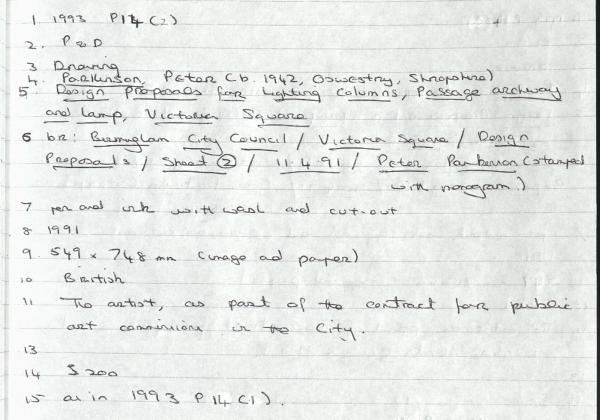 1 1993 P14 (2)
2. P & D
3 Drawing
4. Parkinson, Peter (b. 1942, Oswestry, Shropshire)
5. Design Proposals for Lighting Columns, Passage archway
and lamp, Victoria Square
6 br: Birmingham City Council / Victoria Square / Design
Proposals / Sheet ② / 11.4.91 / Peter Parkinson (stamped
with monogram)
7 pen and ink with wash and cut-out
8 1991
9. 549 x 748 mm (image ad paper)
10 British
11 The artist, as part of the contract for public
art commission in the City.
13
14 200
15 as in 1993 P14 (1).